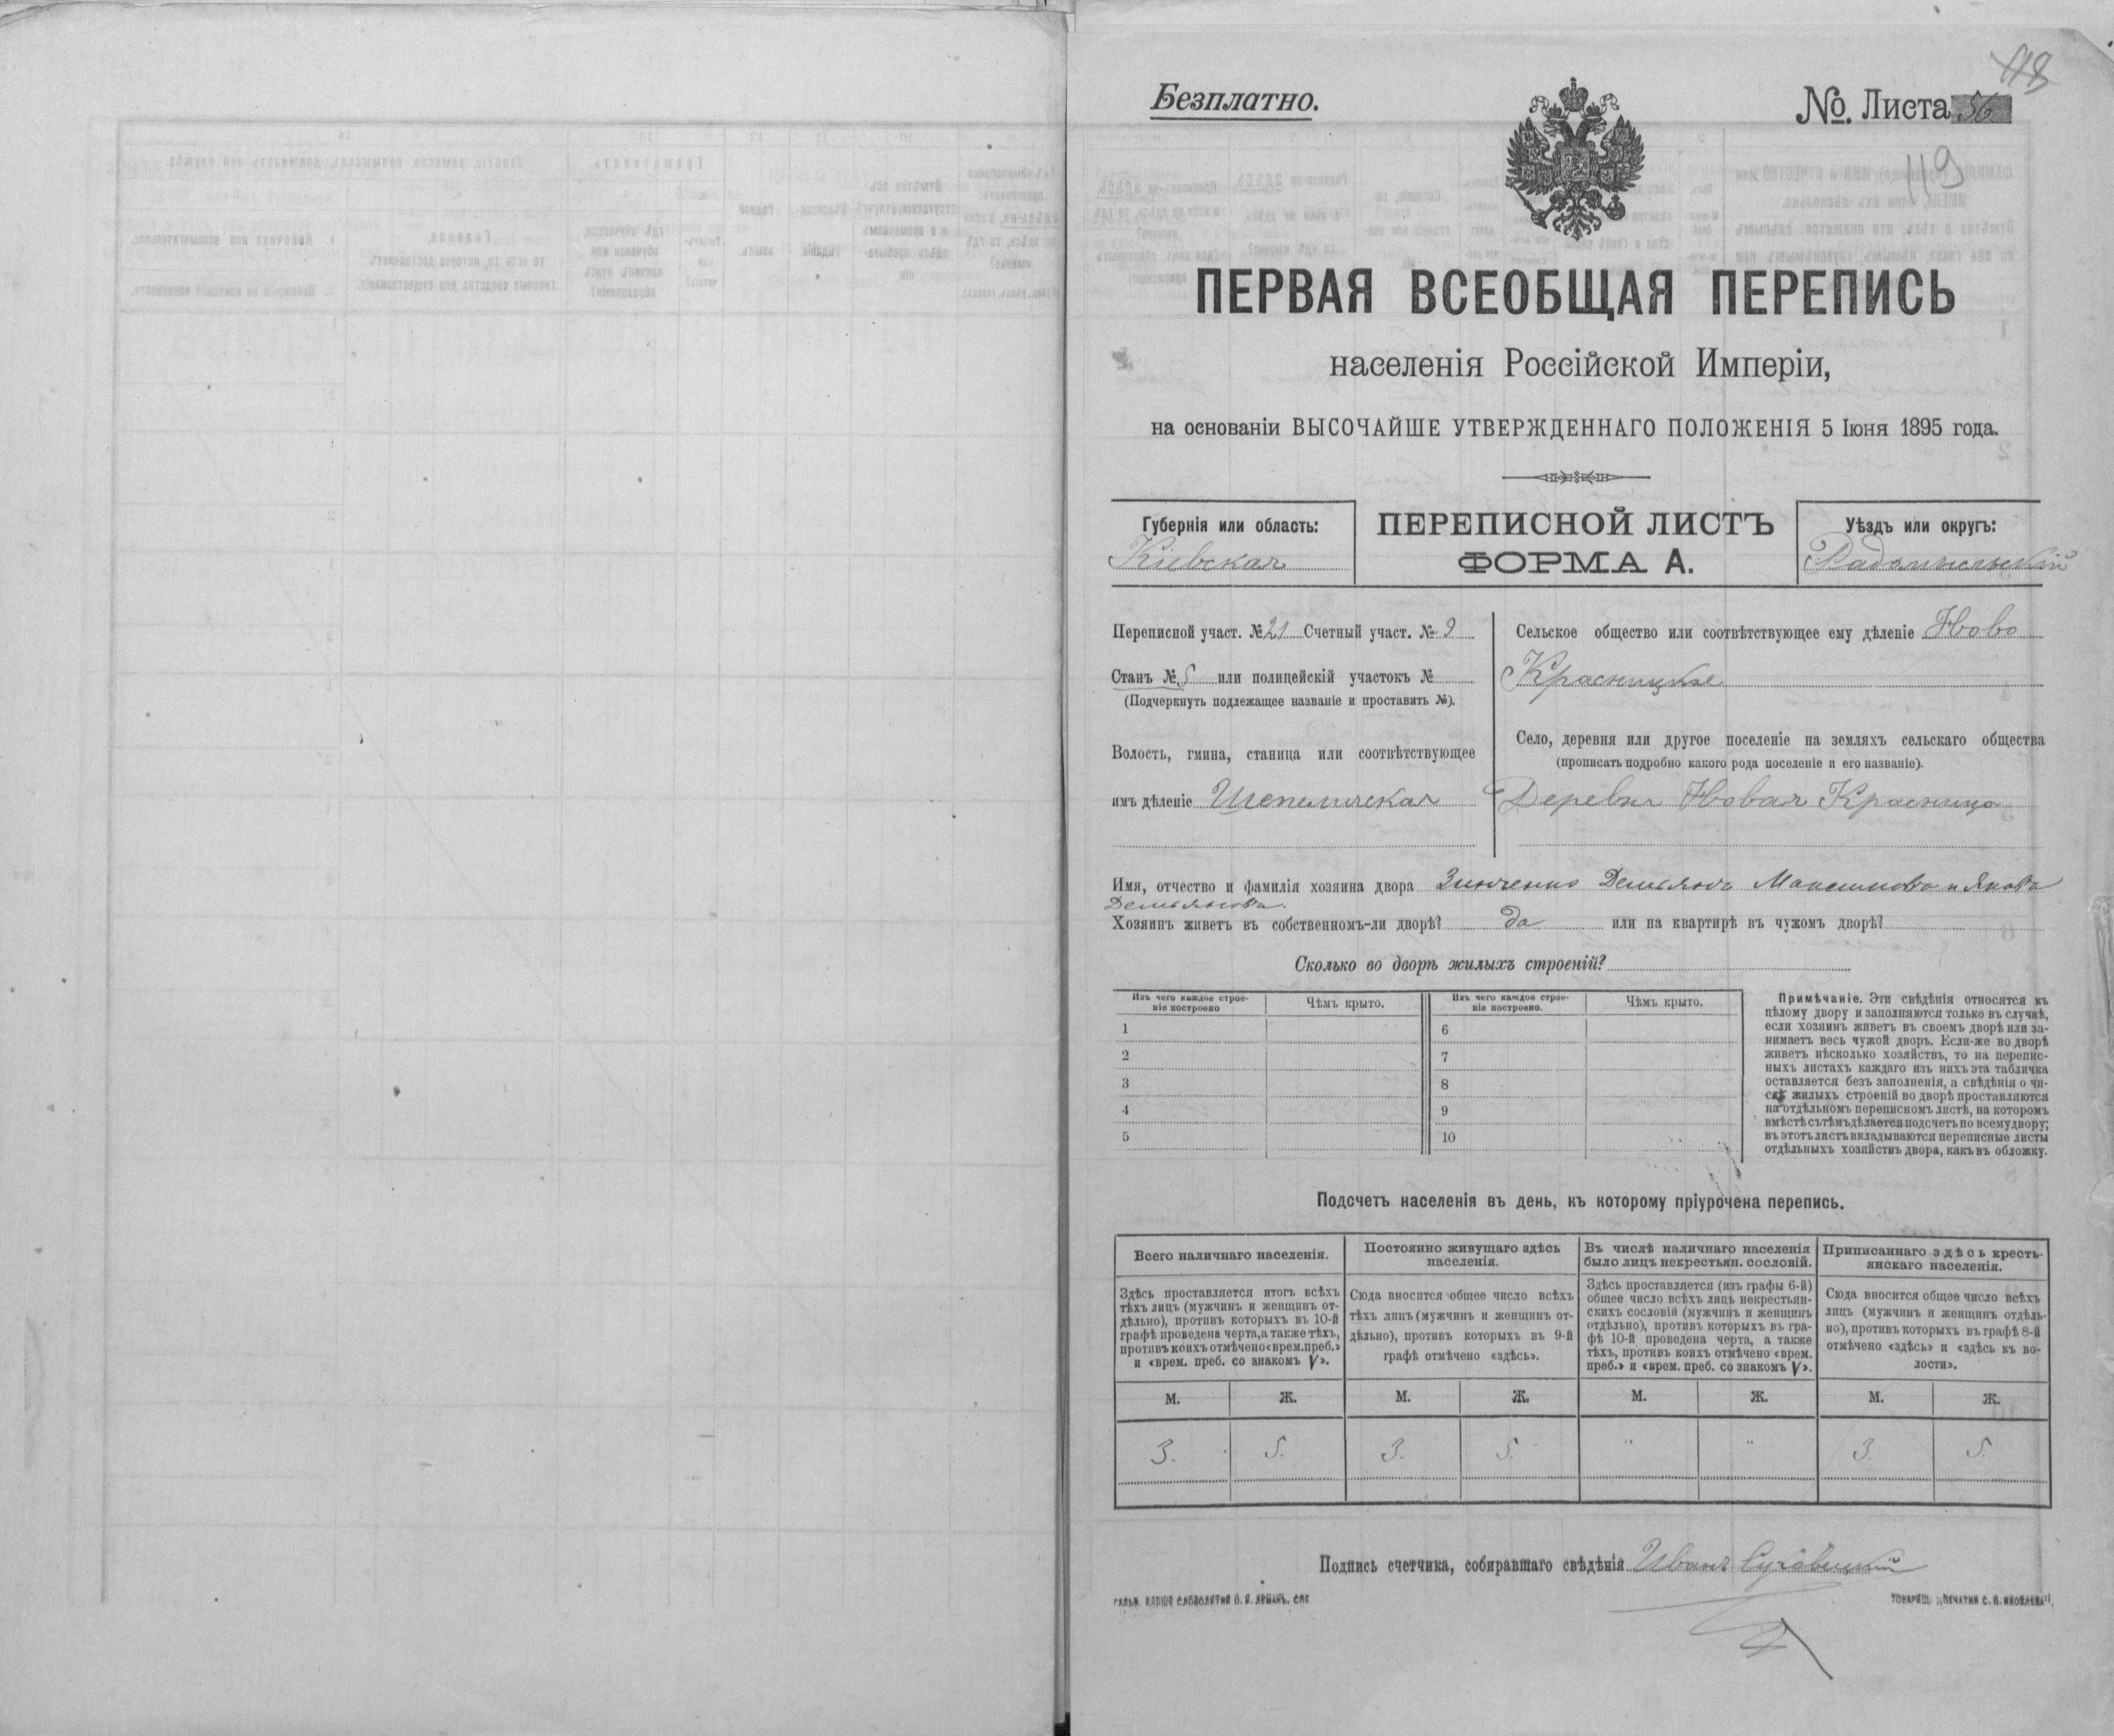 118
Безплатно.
№. Листа 56
119
ПЕРВАЯ ВСЕОБЩАЯ ПЕРЕПИСЬ
населенія Россійской Имперіи,
на основаніи ВЫСОЧАЙШЕ УТВЕРЖДЕННАГО ПОЛОЖЕНІЯ 5 Іюня 1895 года.
Губернія или область:
Кіевская
ПЕРЕПИСНОЙ ЛИСТЪ
ФОРМА А.
Уѣздъ или округъ:
Радомысльскій
Переписной участ. № 21 Счетный участ. № 9
Станъ № 5 или полицейскій участокъ №
(Подчеркнуть подлежащее названіе и проставить №).
Волость, гмина, станица или соотвѣтствующее
имъ дѣленіе Шепеличская
Сельское общество или соотвѣтствующее ему дѣленіе Ново
Красницкое
Село, деревня или другое поселеніе на земляхъ сельскаго общества
(прописать подробно какого рода поселеніе и его названіе).
Деревня Новая Красница
Имя, отчество и фамилія хозяина двора Зинченко Демьяна Максимова и Якова
Демьянова.
Хозяинъ живетъ въ собственномъ-ли дворѣ? да или на квартирѣ въ чужомъ дворѣ?
Сколько во дворѣ жилыхъ строеній?
Изъ чего каждое строе-
ніе построено
Чѣмъ крыто.
Изъ чего каждое строе-
ніе построено.
Чѣмъ крыто.
1
6
2
7
3
8
4
9
5
10
Примѣчаніе. Эти свѣдѣнія относятся къ
цѣлому двору и заполняются только въ случаѣ,
если хозяинъ живетъ въ своемъ дворѣ или за-
нимаетъ весь чужой дворъ. Если-же во дворѣ
живетъ нѣсколько хозяйствъ, то на перепис-
ныхъ листахъ каждаго изъ нихъ эта табличка
оставляется безъ заполненія, а свѣдѣнія о чи-
слѣ жилыхъ строеній во дворѣ проставляются
на отдѣльномъ переписномъ листѣ, на которомъ
вмѣстѣ съ тѣмъ дѣлается подсчетъ по всему двору;
въ этотъ листъ вкладываются переписные листы
отдѣльныхъ хозяйствъ двора, какъ въ обложку.
Подсчетъ населенія въ день, къ которому пріурочена перепись.
Всего наличнаго населенія.
Здѣсь проставляется итогъ всѣхъ
тѣхъ лицъ (мужчинъ и женщинъ от-
дѣльно), противъ которыхъ въ 10-й
графѣ проведена черта, а также тѣхъ,
противъ коихъ отмѣчено «врем. преб.»
и «врем. преб. со знакомъ V».
Постоянно живущаго здѣсь
населенія.
Сюда вносится общее число всѣхъ
тѣхъ лицъ (мужчинъ и женщинъ от-
дѣльно), противъ которыхъ въ 9-й
графѣ отмѣчено «здѣсь».
Въ числѣ наличнаго населенія
было лицъ некрестьян. сословій.
Здѣсь проставляется (изъ графы 6-й)
общее число всѣхъ лицъ некрестьян-
скихъ сословій (мужчинъ и женщинъ
отдѣльно), противъ которыхъ въ гра-
фѣ 10-й проведена черта, а также
тѣхъ, противъ коихъ отмѣчено «врем.
преб.» и «врем. преб. со знакомъ V».
Приписаннаго здѣсь кресть-
янскаго населенія.
Сюда вносится общее число всѣхъ
лицъ (мужчинъ и женщинъ отдѣль-
но), противъ которыхъ въ графѣ 8-й
отмѣчено «здѣсь» и «здѣсь къ во-
лости».
М. Ж. М. Ж. М. Ж. М. Ж.
3. 5. 3. 5. " " 3. 5.
Подпись счетчика, собиравшаго свѣдѣнія Иванъ Суховицкій
ТОВАРИЩ. „ПЕЧАТНЯ С. П. ЯКОВЛЕВА".